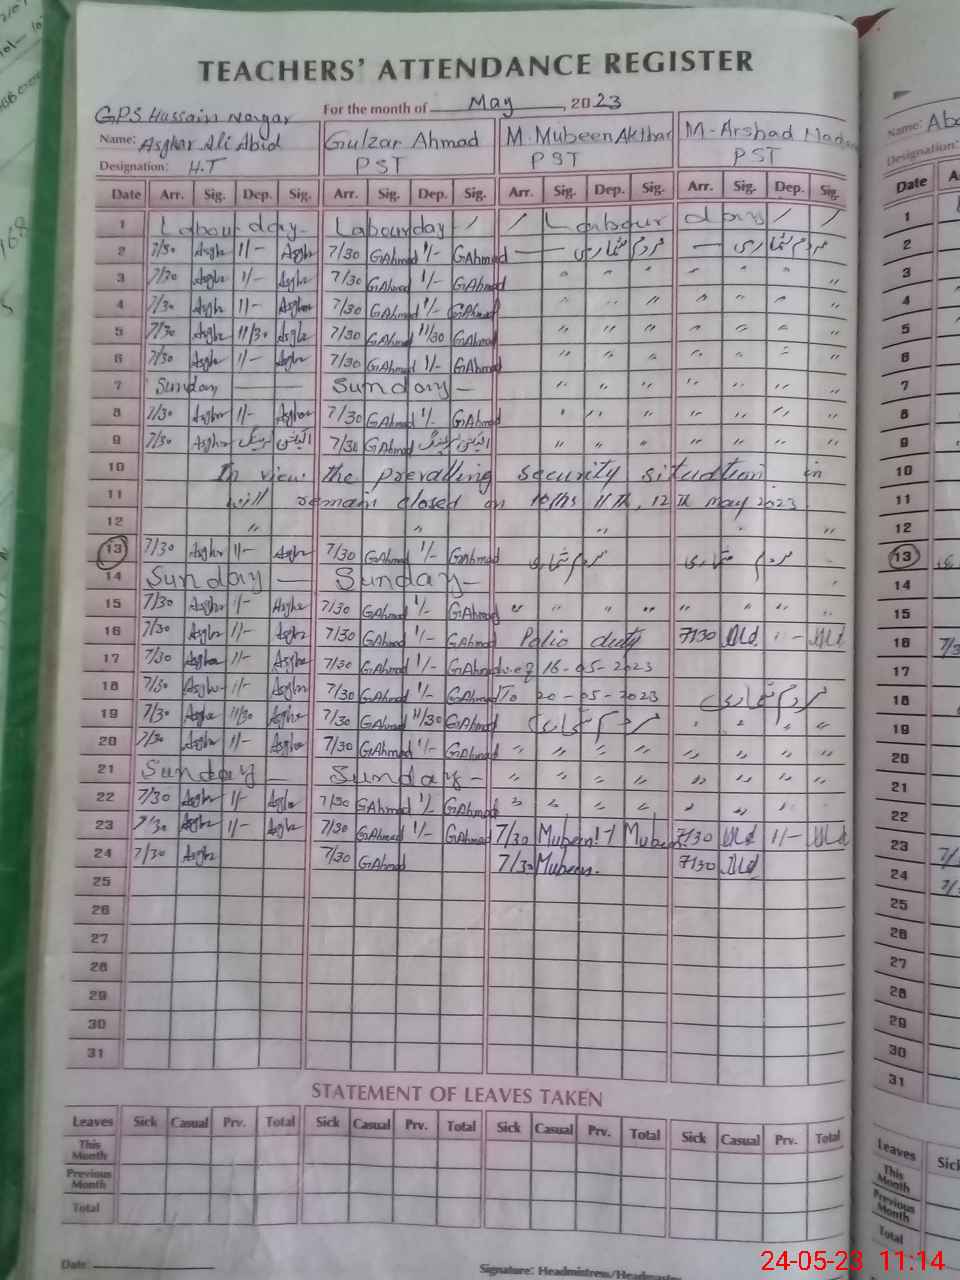 TEACHERS' ATTENDANCE REGISTER
G.P.S Hussain Nagar For the month of May, 2023
Name: Asghar Ali Abid Gulzar Ahmad M. Mubeen Akthar M. Arshad
Designation: H.T PST PST PST
Date Arr. Sig. Dep. Sig. Arr. Sig. Dep. Sig. Arr. Sig. Dep. Sig. Arr. Sig. Dep. Sig.
1 Labour day - Labour day / / Labour day / /
2 7/30 Asghar 11/- Asghar 7/30 GAhmad 1/- GAhmad — مردم شماری — مردم شماری
3 7/30 Asghar 11/- Asghar 7/30 GAhmad 1/- GAhmad " " " " " " "
4 7/30 Asghar 11/- Asghar 7/30 GAhmad 1/- GAhmad " " " " " " "
5 7/30 Asghar 11/30 Asghar 7/30 GAhmad 11/30 GAhmad " " " " " " "
6 7/30 Asghar 11/- Asghar 7/30 GAhmad 1/- GAhmad " " " " " " "
7 Sunday — Sunday — " " " " " " "
8 7/30 Asghar 11/- Asghar 7/30 GAhmad 1/- GAhmad " " " " " " "
9 7/30 Asghar 7/30 GAhmad " " " " " " "
10 In view the prevailing security situation in
11 will remain closed on 10th, 11th, 12th may 2023
12 " " " "
13 7/30 Asghar 11/- Asghar 7/30 GAhmad 1/- GAhmad مردم شماری مردم شماری
14 Sunday — Sunday —
15 7/30 Asghar 11/- Asghar 7/30 GAhmad 1/- GAhmad " " " " " " "
16 7/30 Asghar 11/- Asghar 7/30 GAhmad 1/- GAhmad Polio duty 7/30 11/-
17 7/30 Asghar 11/- Asghar 7/30 GAhmad 1/- GAhmad 16-05-2023
18 7/30 Asghar 11/- Asghar 7/30 GAhmad 1/- GAhmad To 20-05-2023 مردم شماری
19 7/30 Asghar 11/30 Asghar 7/30 GAhmad 11/30 GAhmad مردم شماری " " "
20 7/30 Asghar 11/- Asghar 7/30 GAhmad 1/- GAhmad " " " " " " " "
21 Sunday — Sunday — " " " " " " " "
22 7/30 Asghar 11/- Asghar 7/30 GAhmad 1/- GAhmad " " " " " " "
23 7/30 Asghar 11/- Asghar 7/30 GAhmad 1/- GAhmad 7/30 Mubeen 1/- Mubeen 7/30 11/-
24 7/30 Asghar 7/30 GAhmad 7/30 Mubeen 7/30
25
26
27
28
29
30
31
STATEMENT OF LEAVES TAKEN
Leaves Sick Casual Prv. Total Sick Casual Prv. Total Sick Casual Prv. Total Sick Casual Prv. Total
This Month
Previous Month
Total
Date: Signature: Headmistress/Headmaster
Name:
Designation:
Date
1
2
3
4
5
6
7
8
9
10
11
12
13
14
15
16
17
18
19
20
21
22
23
24
25
26
27
28
29
30
31
Leaves
This Month
Previous Month
Total
24-05-23 11:14